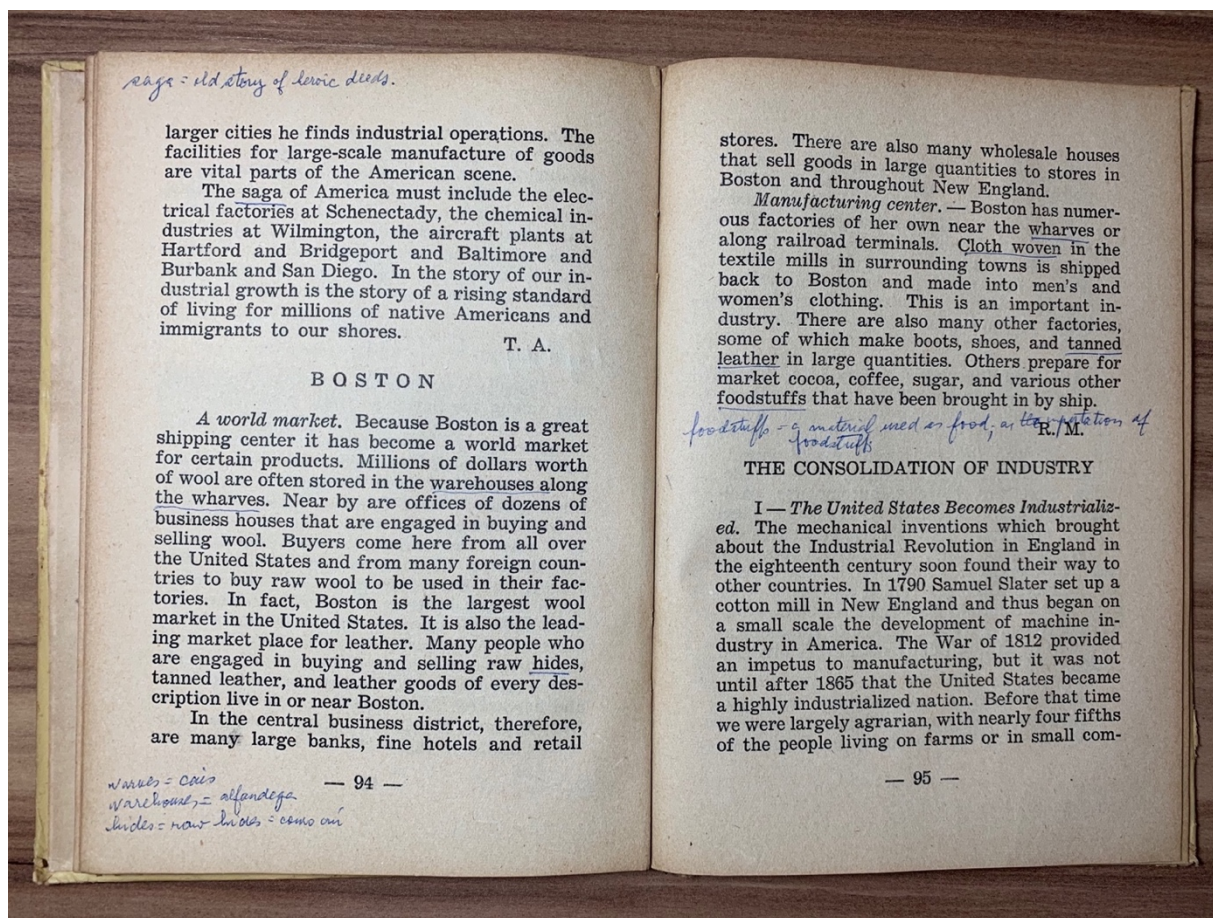 saga = old story of heroic deeds.
larger cities he finds industrial operations. The
facilities for large-scale manufacture of goods
are vital parts of the American scene.
The saga of America must include the elec-
trical factories at Schenectady, the chemical in-
dustries at Wilmington, the aircraft plants at
Hartford and Bridgeport and Baltimore and
Burbank and San Diego. In the story of our in-
dustrial growth is the story of a rising standard
of living for millions of native Americans and
immigrants to our shores.
T. A.
BOSTON
A world market. Because Boston is a great
shipping center it has become a world market
for certain products. Millions of dollars worth
of wool are often stored in the warehouses along
the wharves. Near by are offices of dozens of
business houses that are engaged in buying and
selling wool. Buyers come here from all over
the United States and from many foreign coun-
tries to buy raw wool to be used in their fac-
tories. In fact, Boston is the largest wool
market in the United States. It is also the lead-
ing market place for leather. Many people who
are engaged in buying and selling raw hides,
tanned leather, and leather goods of every des-
cription live in or near Boston.
In the central business district, therefore,
are many large banks, fine hotels and retail
— 94 —
= cais
warehouses = alfandega
hides = raw hides =
stores. There are also many wholesale houses
that sell goods in large quantities to stores in
Boston and throughout New England.
Manufacturing center. — Boston has numer-
ous factories of her own near the wharves or
along railroad terminals. Cloth woven in the
textile mills in surrounding towns is shipped
back to Boston and made into men's and
women's clothing. This is an important in-
dustry. There are also many other factories,
some of which make boots, shoes, and tanned
leather in large quantities. Others prepare for
market cocoa, coffee, sugar, and various other
foodstuffs that have been brought in by ship.
foodstuffs = a material used as food; as of
foodstuffs
R. M.
THE CONSOLIDATION OF INDUSTRY
I — The United States Becomes Industrializ-
ed. The mechanical inventions which brought
about the Industrial Revolution in England in
the eighteenth century soon found their way to
other countries. In 1790 Samuel Slater set up a
cotton mill in New England and thus began on
a small scale the development of machine in-
dustry in America. The War of 1812 provided
an impetus to manufacturing, but it was not
until after 1865 that the United States became
a highly industrialized nation. Before that time
we were largely agrarian, with nearly four fifths
of the people living on farms or in small com-
— 95 —